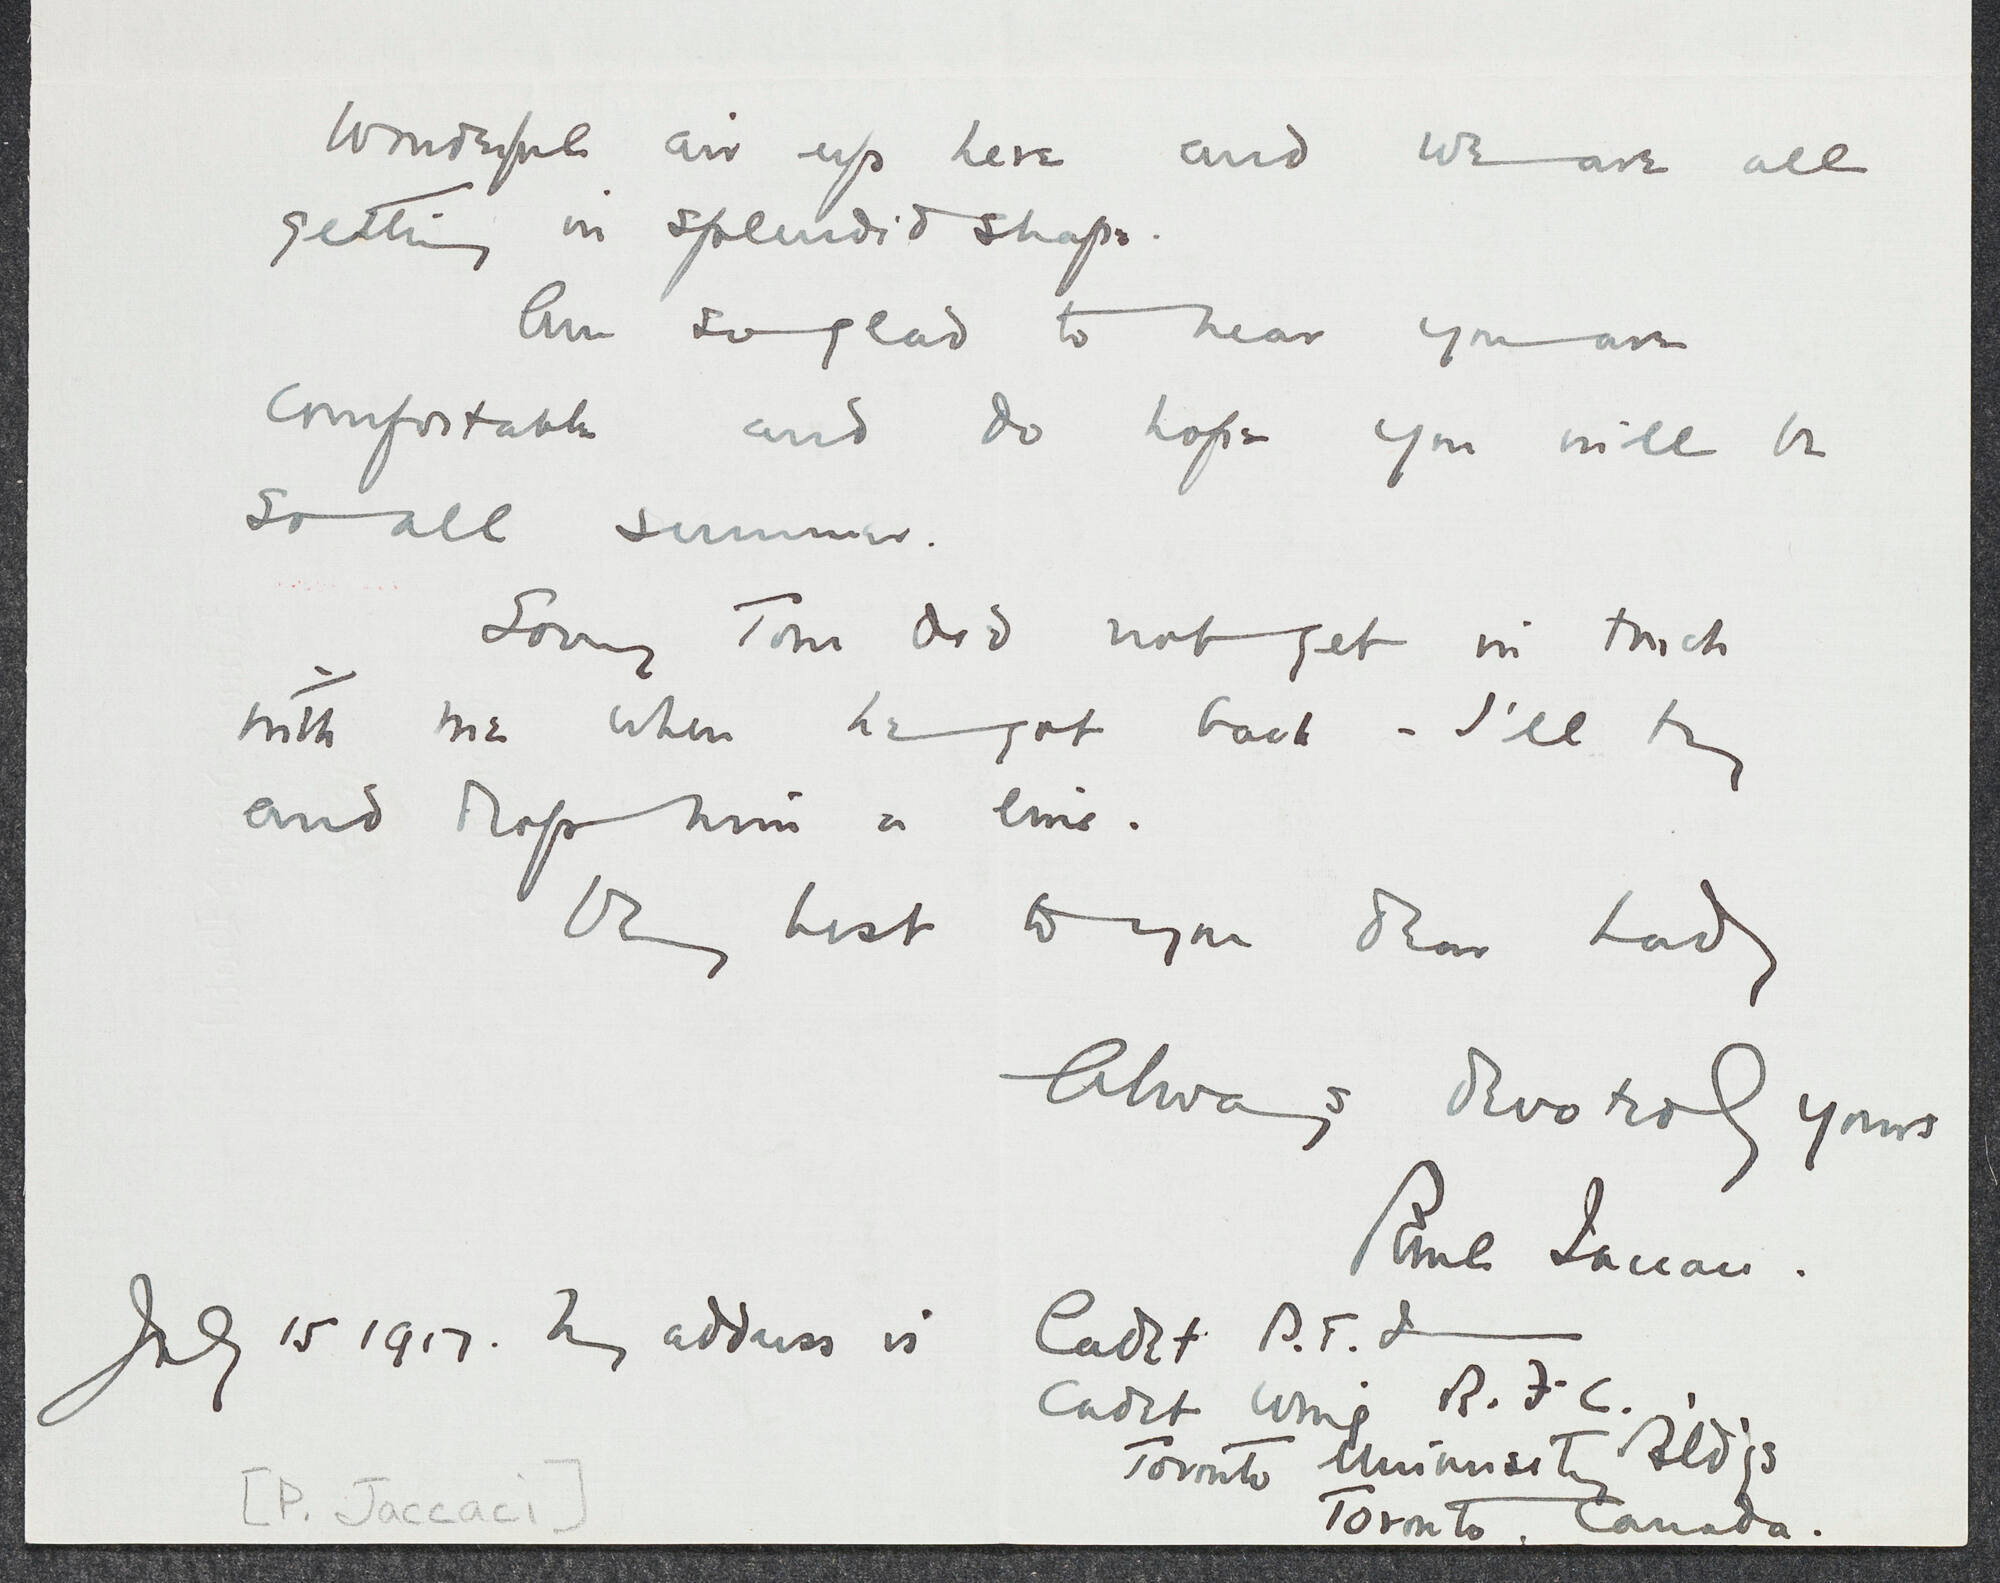 Wonderful air up here and we are all
getting in splendid shape.
Am so glad to hear you are
comfortable and do hope you will be
so all summer.
Sorry Tom did not get in touch
with me when he got back - I'll try
and drop him a line.
Very best to you dear Lady
Always devotedly yours
Paul Jaccaci.
July 15 1917. My address is Cadet P.T. J
Cadet Wing R.F.C.
Toronto University Bldgs
Toronto, Canada.
[P. Jaccaci]